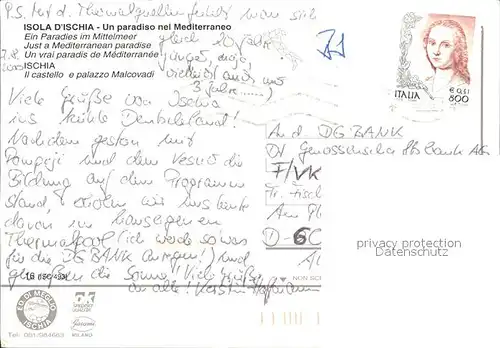 P.S. Auf d. Thermalquellen fühlt man sich
gleich 20 Jahre
jünger
vielleicht auch nur
3 Jahre......)
ISOLA D'ISCHIA - Un paradiso nel Mediterraneo
Ein Paradies im Mittelmeer
Just a Mediterranean paradise
Un vrai paradis de Méditerranée
ISCHIA
Il castello e palazzo Malcovadi
ITALIA
€ 0,41
800
Viele Grüße von Ischia
ins kühle Deutschland!
Nachdem gestern mit
Pompeji und dem Vesuv die
Bildung auf dem Programm
stand, erholen wir uns heute
davon im hauseigenen
Thermalpool (ich werde sowas
für die DG BANK anregen!) und
genießen die Sonne! Viele Grüße
an alle! Kerstin
An d. DG BANK
Dt Genossenschaftsbank AG
F/VK
Fr. Fisch
Am Pl
D-6
privacy protection
Datenschutz
16 (ISC/493)
NON SC
ED. DI MEGLIO
ISCHIA
Tel. 081/984663
MILANO